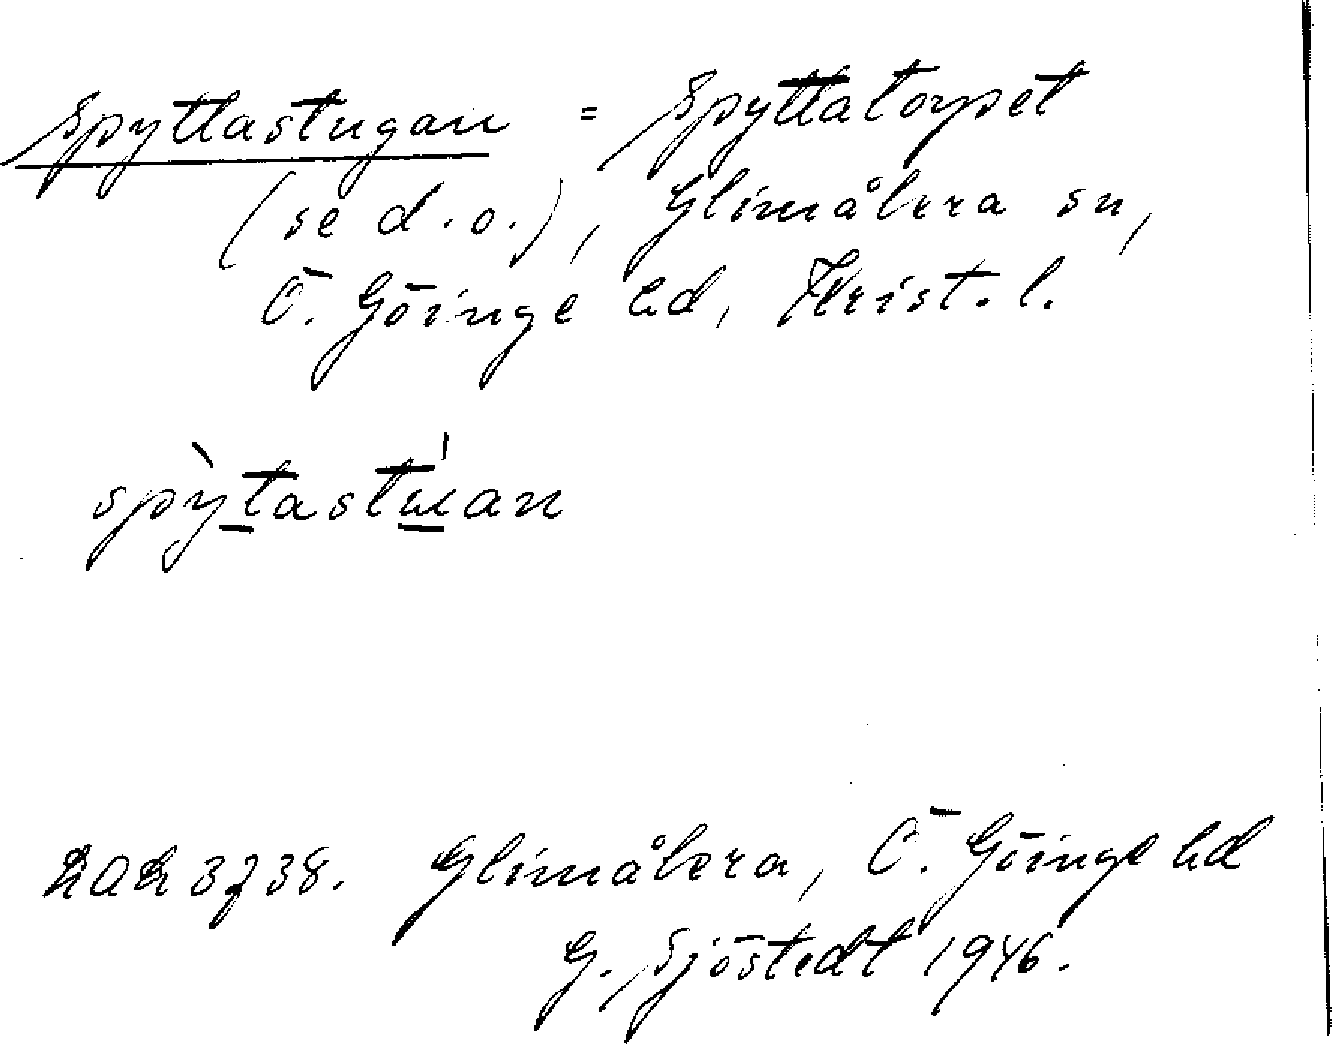 Spyttastugan = Spyttatorpet
(se d.o.), Glimåkra sn,
Ö. Göinge hd, Krist. l.
spỳtastu̲ˈan
3738. Glimåkra, Ö. Göinge hd
G. Sjöstedt 1946.